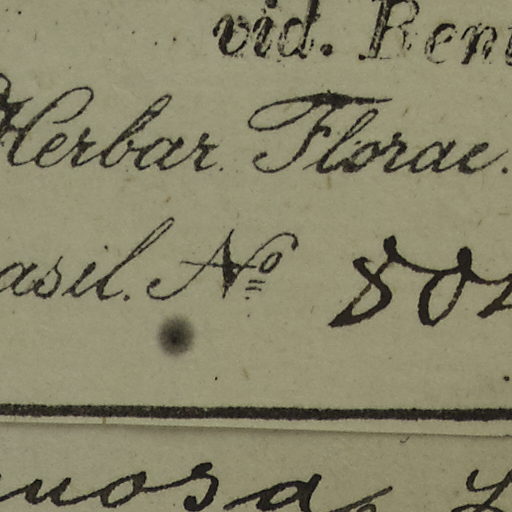 vid. Ben
Herbar. Florae.
asil. Nº 80
uosa L